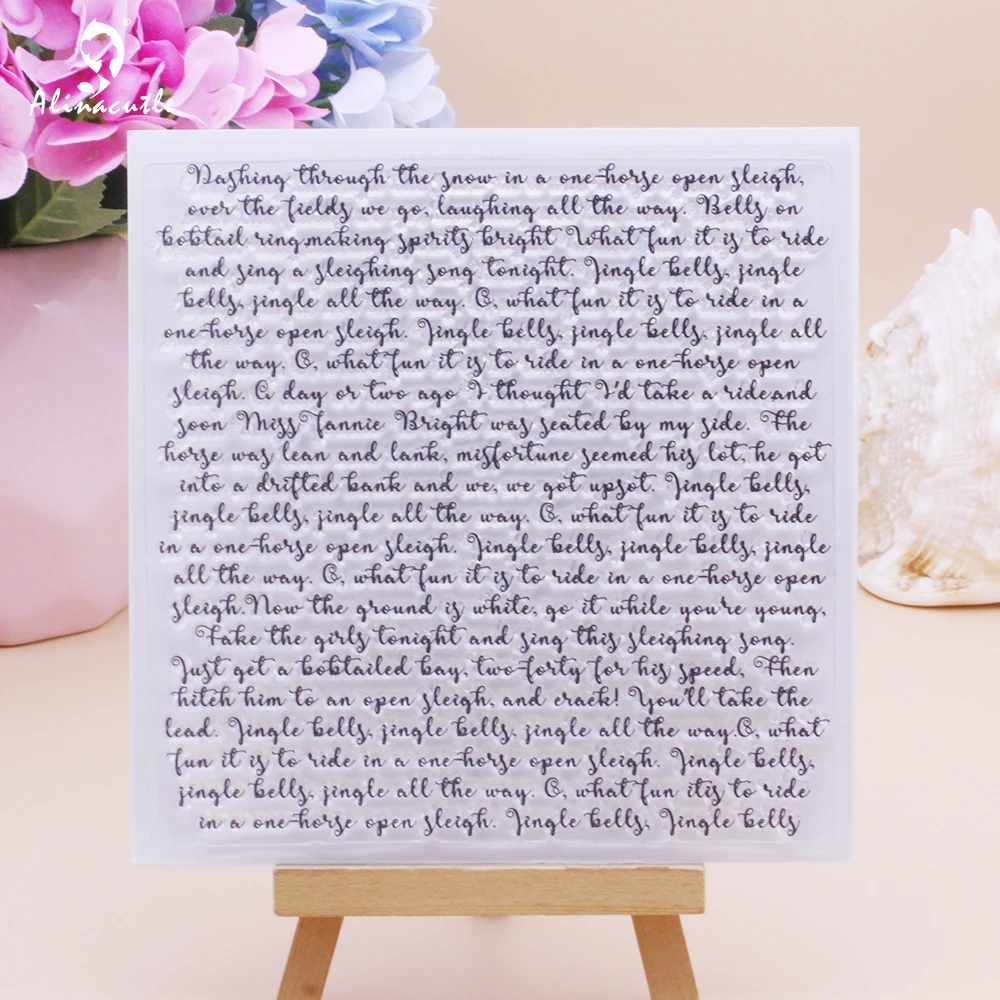 Alinacutle
Dashing through the snow in a one-horse open sleigh,
over the fields we go, laughing all the way. Bells on
bobtail ring,making spirits bright What fun it is to ride
and sing a sleighing song tonight. Jingle bells, jingle
bells, jingle all the way. O, what fun it is to ride in a
one-horse open sleigh. Jingle bells, jingle bells, jingle all
the way. O, what fun it is to ride in a one-horse open
sleigh. A day or two ago I thought I'd take a ride,and
soon Miss Fannie Bright was seated by my side. The
horse was lean and lank, misfortune seemed his lot, he got
into a drifted bank and we, we got upsot. Jingle bells,
jingle bells, jingle all the way. O, what fun it is to ride
in a one-horse open sleigh. Jingle bells, jingle bells, jingle
all the way. O, what fun it is to ride in a one-horse open
sleigh.Now the ground is white, go it while you're young,
Take the girls tonight and sing this sleighing song.
Just get a bobtailed bay, two-forty for his speed, Then
hitch him to an open sleigh, and crack! You'll take the
lead. Jingle bells, jingle bells, jingle all the way.O, what
fun it is to ride in a one-horse open sleigh. Jingle bells,
jingle bells, jingle all the way. O, what fun itis to ride
in a one-horse open sleigh. Jingle bells, Jingle bells